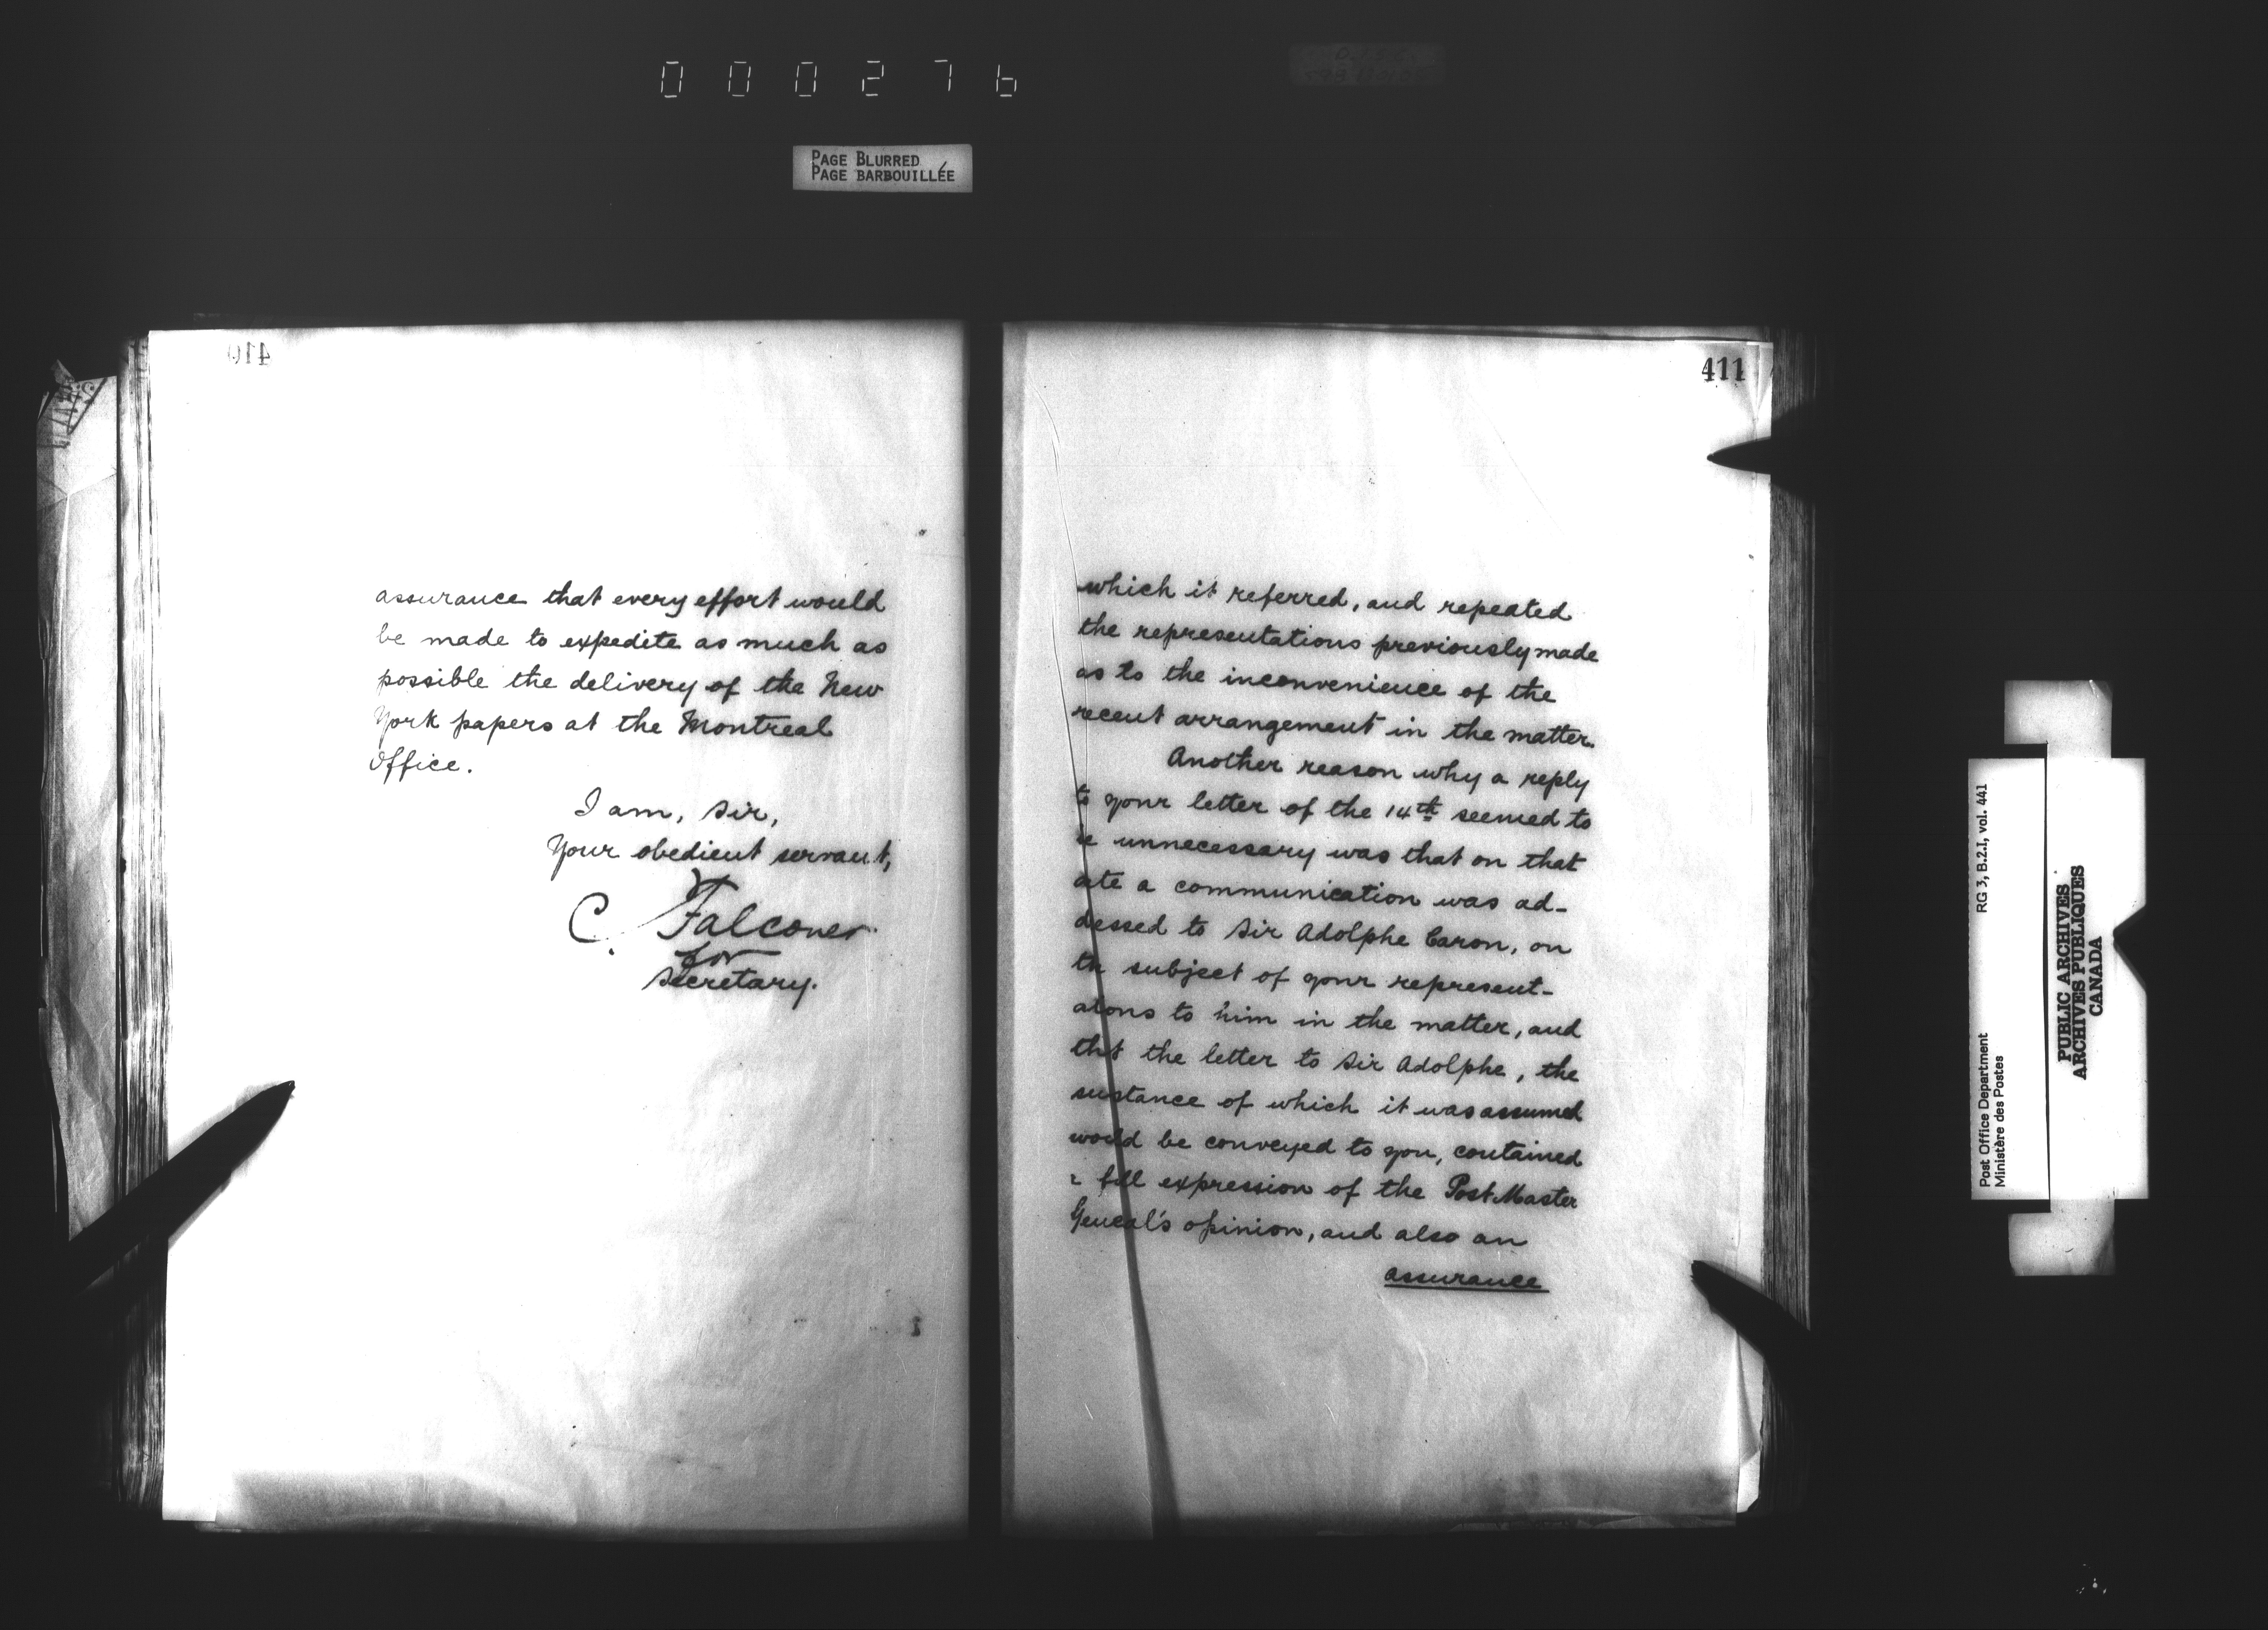 000276
PAGE BLURRED
PAGE BARBOUILLÉE
410
assurance that every effort would
be made to expedite as much as
possible the delivery of the New
York papers at the Montreal
Office.
I am, Sir,
Your obedient servant,
C. Falconer
for
Secretary.
411
which it referred, and repeated
the representations previously made
as to the inconvenience of the
recent arrangement in the matter.
Another reason why a reply
to your letter of the 14th seemed to
unnecessary was that on that
ate a communication was ad-
dessed to Sir Adolphe Caron, on
th subject of your represent-
atons to him in the matter, and
tht the letter to Sir Adolphe, the
sustance of which it was assumed
would be conveyed to you, contained
full expression of the Post Master
Geneal's opinion, and also an
assurance
RG 3, B.2.I, vol. 441
Post Office Department
Ministère des Postes
PUBLIC ARCHIVES
ARCHIVES PUBLIQUES
CANADA